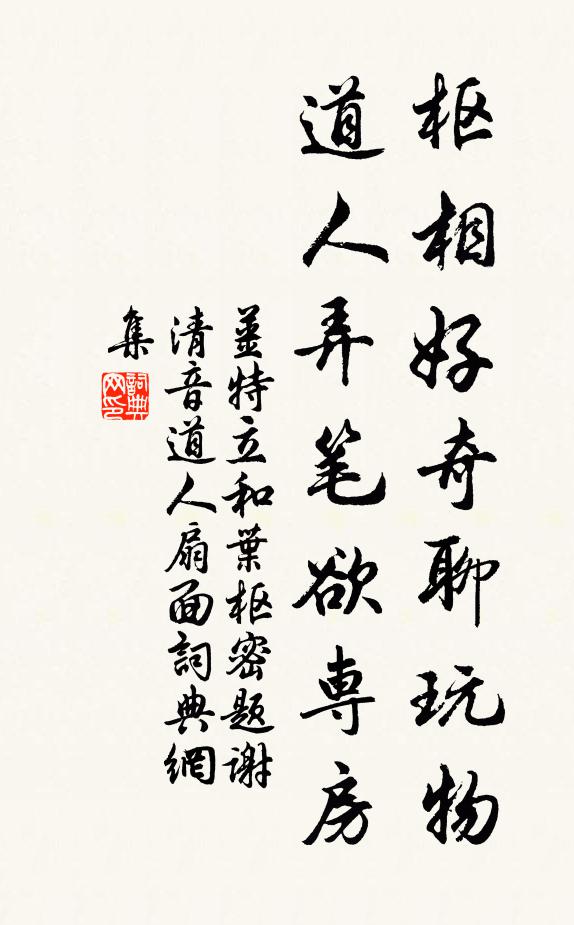 枢相好奇聊玩物
道人弄笔欲専房
姜特立和葉枢密题谢
清音道人扇面詞典網
集
詞典
网印